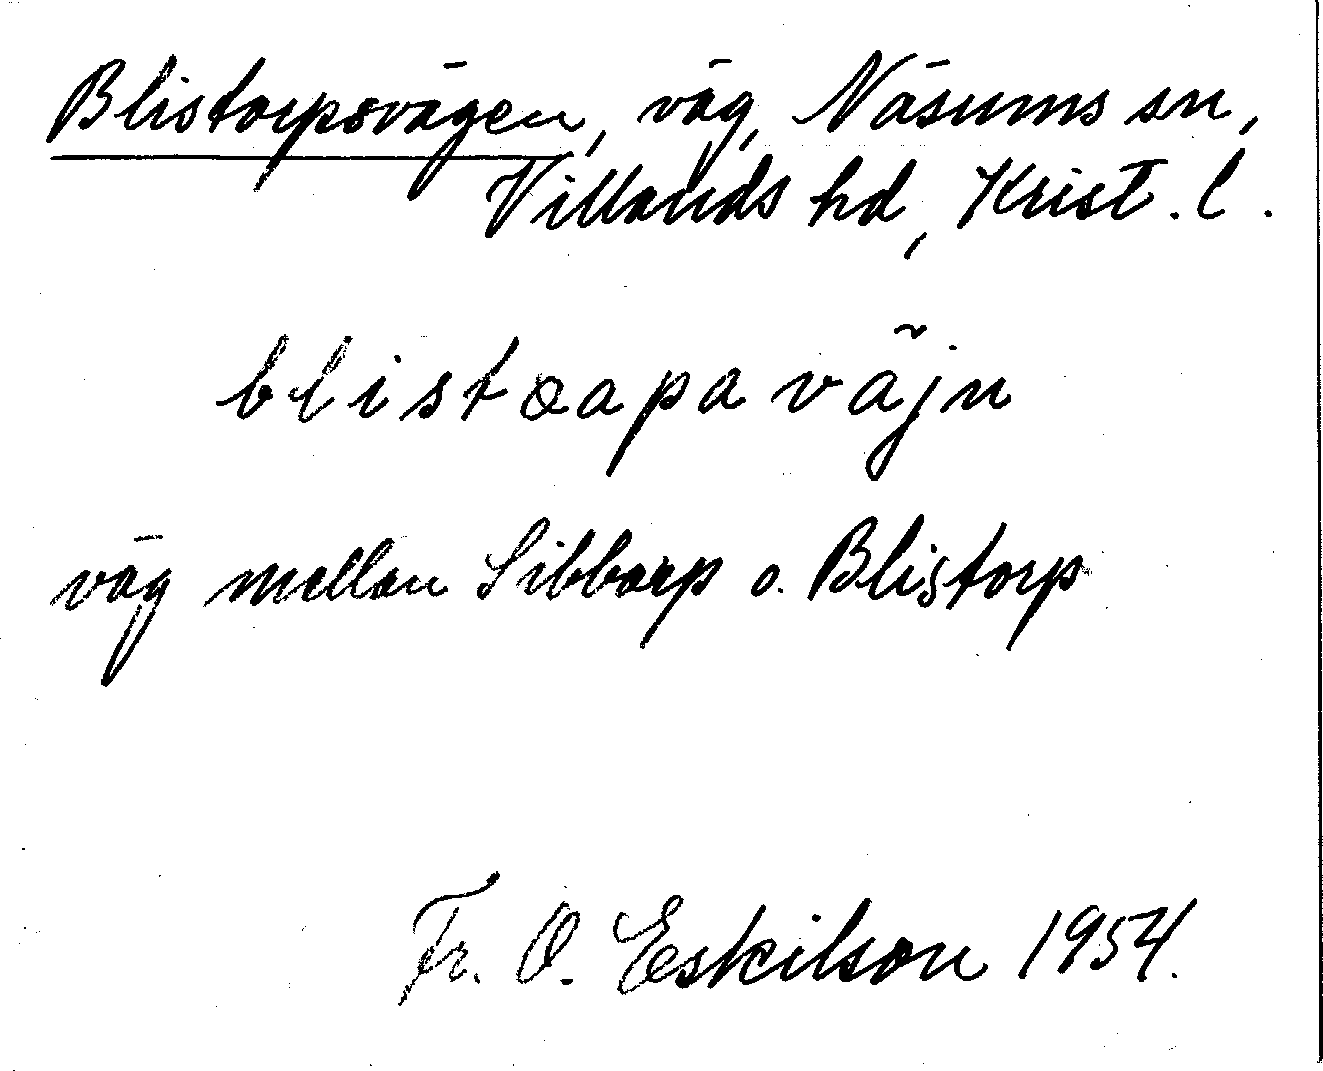 Blistorpsvägen, väg, Näsums sn,
Villands hd, Krist. l.
blistoapa väjn
väg mellan Sibbarp o. Blistorp
Fr. O. Eskilson 1954.